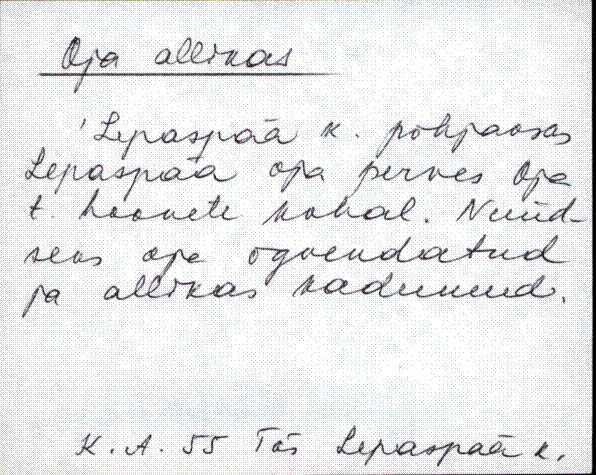 Oja allikas
'Lepaspää k. põhjaosas
Lepaspää oja perves Oja
t. hoonete kohal. Nüüd-
seks oja õgvendatud
ja allikas kadunud.
K. A. 55 Tõs Lepaspää k.